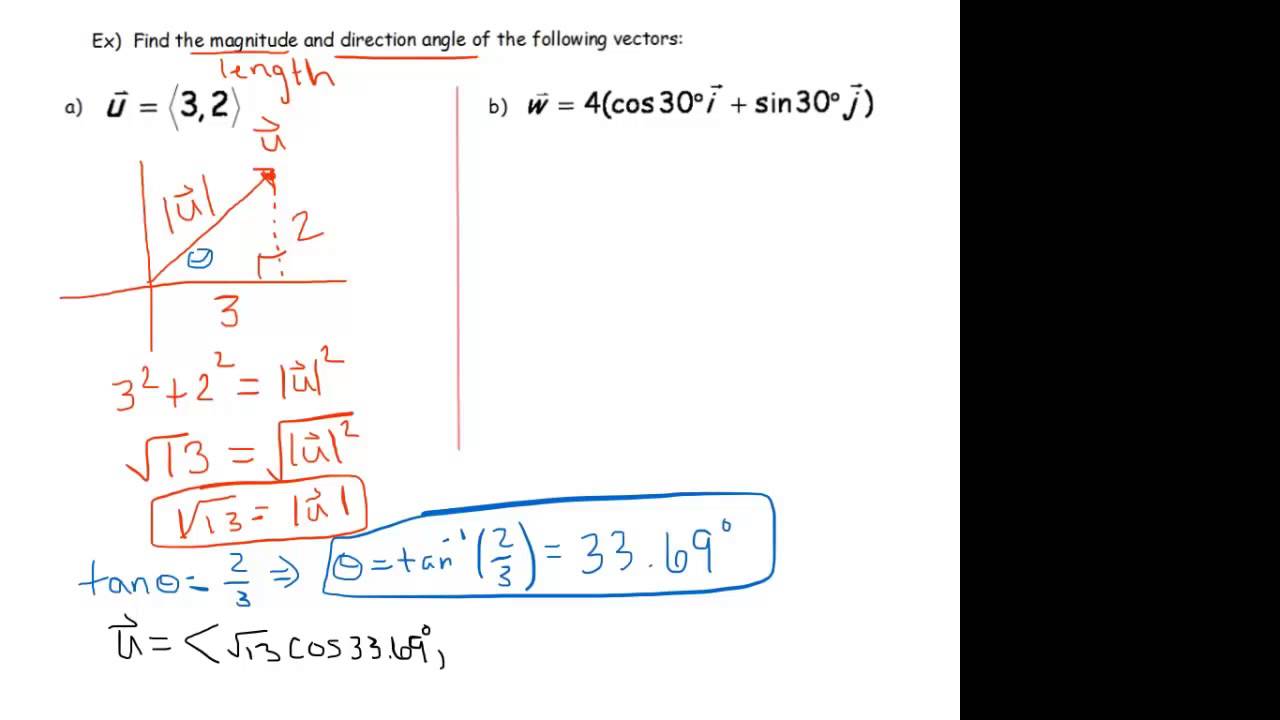 Ex) Find the magnitude and direction angle of the following vectors:
length
a) u⃗ = ⟨3, 2⟩
u⃗
|u⃗|
2
θ
3
3² + 2² = |u⃗|²
√13 = √|u⃗|²
√13 = |u⃗|
tanθ = 2/3 ⇒ θ = tan⁻¹(2/3) = 33.69°
u⃗ = <√13 cos33.69°,
b) w⃗ = 4(cos30°i⃗ + sin30°j⃗)